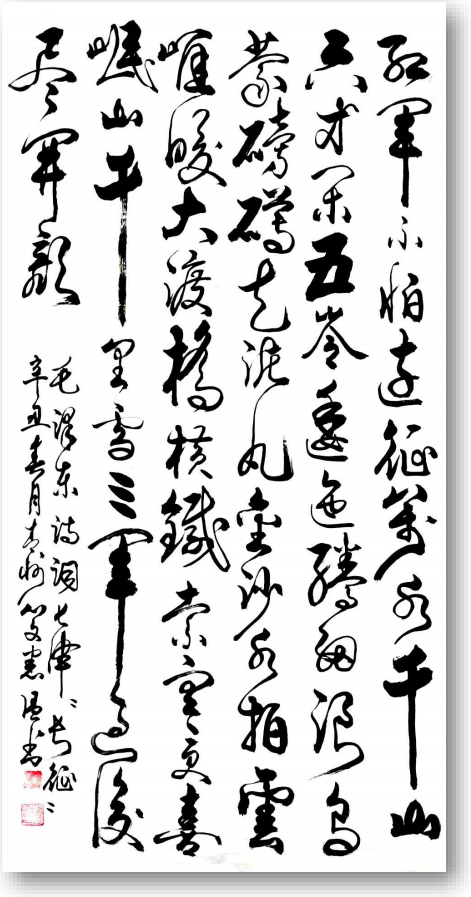 红军不怕远征萬水千山
只等闲五岭逶迤腾细浪乌
蒙磅礴走泥丸金沙水拍雲
崖暖大渡橋横鐵索寒更喜
岷山千里雪三军过後
尽開颜
毛泽东诗词七律、长征、
辛丑春月青州书